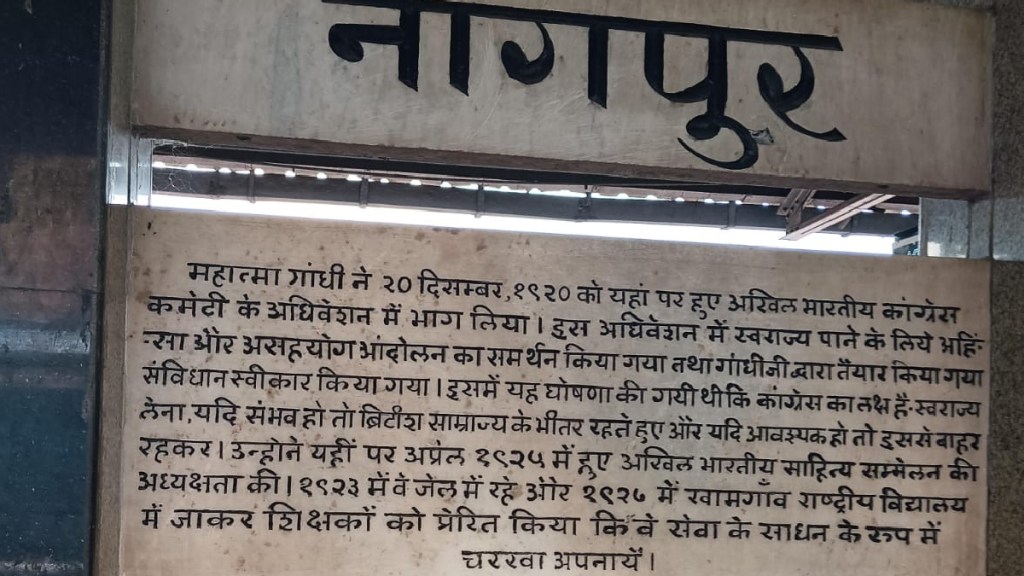 नागपुर
महात्मा गांधी ने २० दिसम्बर, १९२० को यहां पर हुए अखिल भारतीय कांग्रेस
कमेटी के अधिवेशन में भाग लिया। इस अधिवेशन में स्वराज्य पाने के लिये अहिं-
-सा और असहयोग आंदोलन का समर्थन किया गया तथा गांधीजी द्वारा तैयार किया गया
संविधान स्वीकार किया गया। इसमें यह घोषणा की गयी थी कि कांग्रेस का लक्ष है-स्वराज्य
लेना, यदि संभव हो तो ब्रिटीश साम्राज्य के भीतर रहते हुए और यदि आवश्यक हो तो इससे बाहर
रहकर। उन्होने यहीं पर अप्रेल १९२५ में हुए अखिल भारतीय साहित्य सम्मेलन की
अध्यक्षता की। १९२३ में वे जेल में रहे और १९२५ में खामगाँव राष्ट्रीय विद्यालय
में जाकर शिक्षकों को प्रेरित किया कि वे सेवा के साधन के रुप में
चरखा अपनायें।